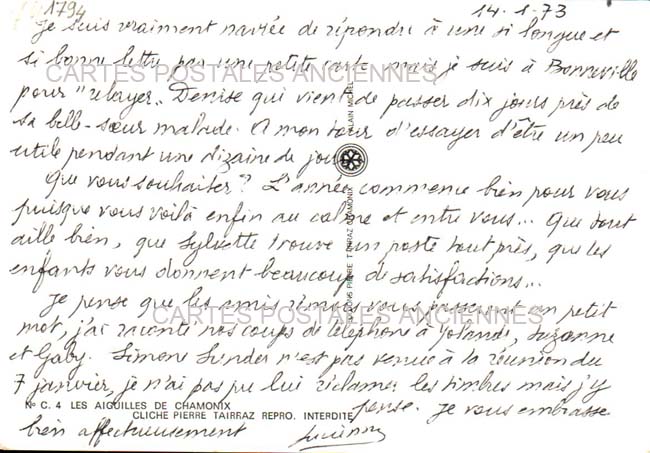 1794
14-1-73
Je suis vraiment navrée de répondre à une si longue et
si bonne lettre par une petite carte mais je suis à Bonneville
CARTES POSTALES ANCIENNES
pour "relayer" Denise qui vient de passer dix jours près de
sa belle-sœur malade. A mon tour d'essayer d'être un peu
utile pendant une dizaine de jours
Que vous souhaiter ? L'année commence bien pour vous
puisque vous voilà enfin au calme et entre vous... Que tout
aille bien, que Sylvette trouve un poste tout près, que les
enfants vous donnent beaucoup de satisfactions...
Je pense que les amis vous un petit
CARTES POSTALES ANCIENNES
mot, j'ai raconté nos coups de téléphone à Yolande, Suzanne
et Gaby. Simone n'est pas venue à la réunion du
7 janvier, je n'ai pas pu lui réclamer les timbres mais j'y
pense. Je vous embrasse
bien affectueusement
Lucienne
No C. 4 LES AIGUILLES DE CHAMONIX
CLICHE PIERRE TAIRRAZ REPRO. INTERDITE
PIERRE TAIRRAZ CHAMONIX
ALAIN MICHEL